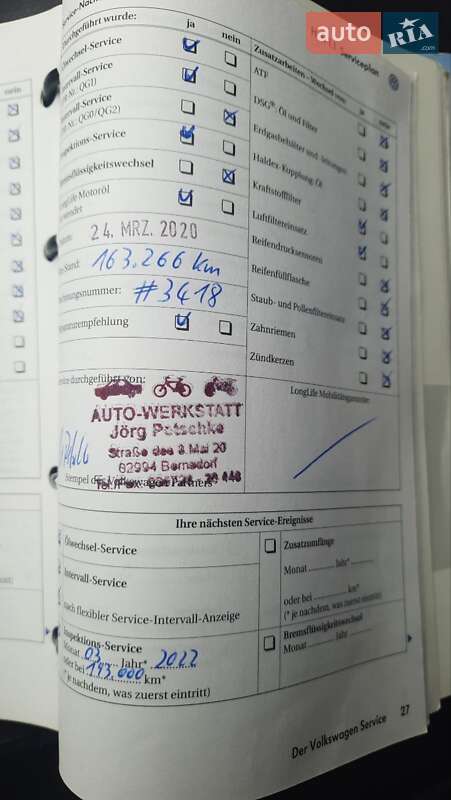 Service-Nach
Durchgeführt wurde:
ja
nein
Serviceplan
auto RIA.com
Ölwechsel-Service
Zusatzarbeiten – Wechsel von:
ja
nein
ATF
Intervall-Service
QG1)
DSG®-Öl und Filter
Intervall-Service
QG0/QG2)
Erdgasbehälter und
Inspektions-Service
Haldex-Kupplung Öl
Bremsflüssigkeitswechsel
Kraftstofffilter
LongLife Motoröl
Luftfiltereinsatz
24. MRZ. 2020
Reifendrucksensoren
Stand: 163.266 km
Reifenfüllflasche
Rechnungsnummer: #3418
Staub- und Pollenfiltereinsatz
Reparaturempfehlung
Zahnriemen
Zündkerzen
Service durchgeführt von:
LongLife Mobilitätsgarantie:
AUTO-WERKSTATT
Jörg Petschke
Straße des 8. Mai 20
02994 Bernsdorf
Stempel des Volkswagen Partners
Ihre nächsten Service-Ereignisse
Ölwechsel-Service
Zusatzumfänge
Monat Jahr*
Intervall-Service
oder bei km*
(* je nachdem, was zuerst eintritt)
nach flexibler Service-Intervall-Anzeige
Inspektions-Service
Bremsflüssigkeitswechsel
Monat 03 Jahr* 2022
Monat Jahr
oder bei 193.000 km*
(* je nachdem, was zuerst eintritt)
Der Volkswagen Service
27